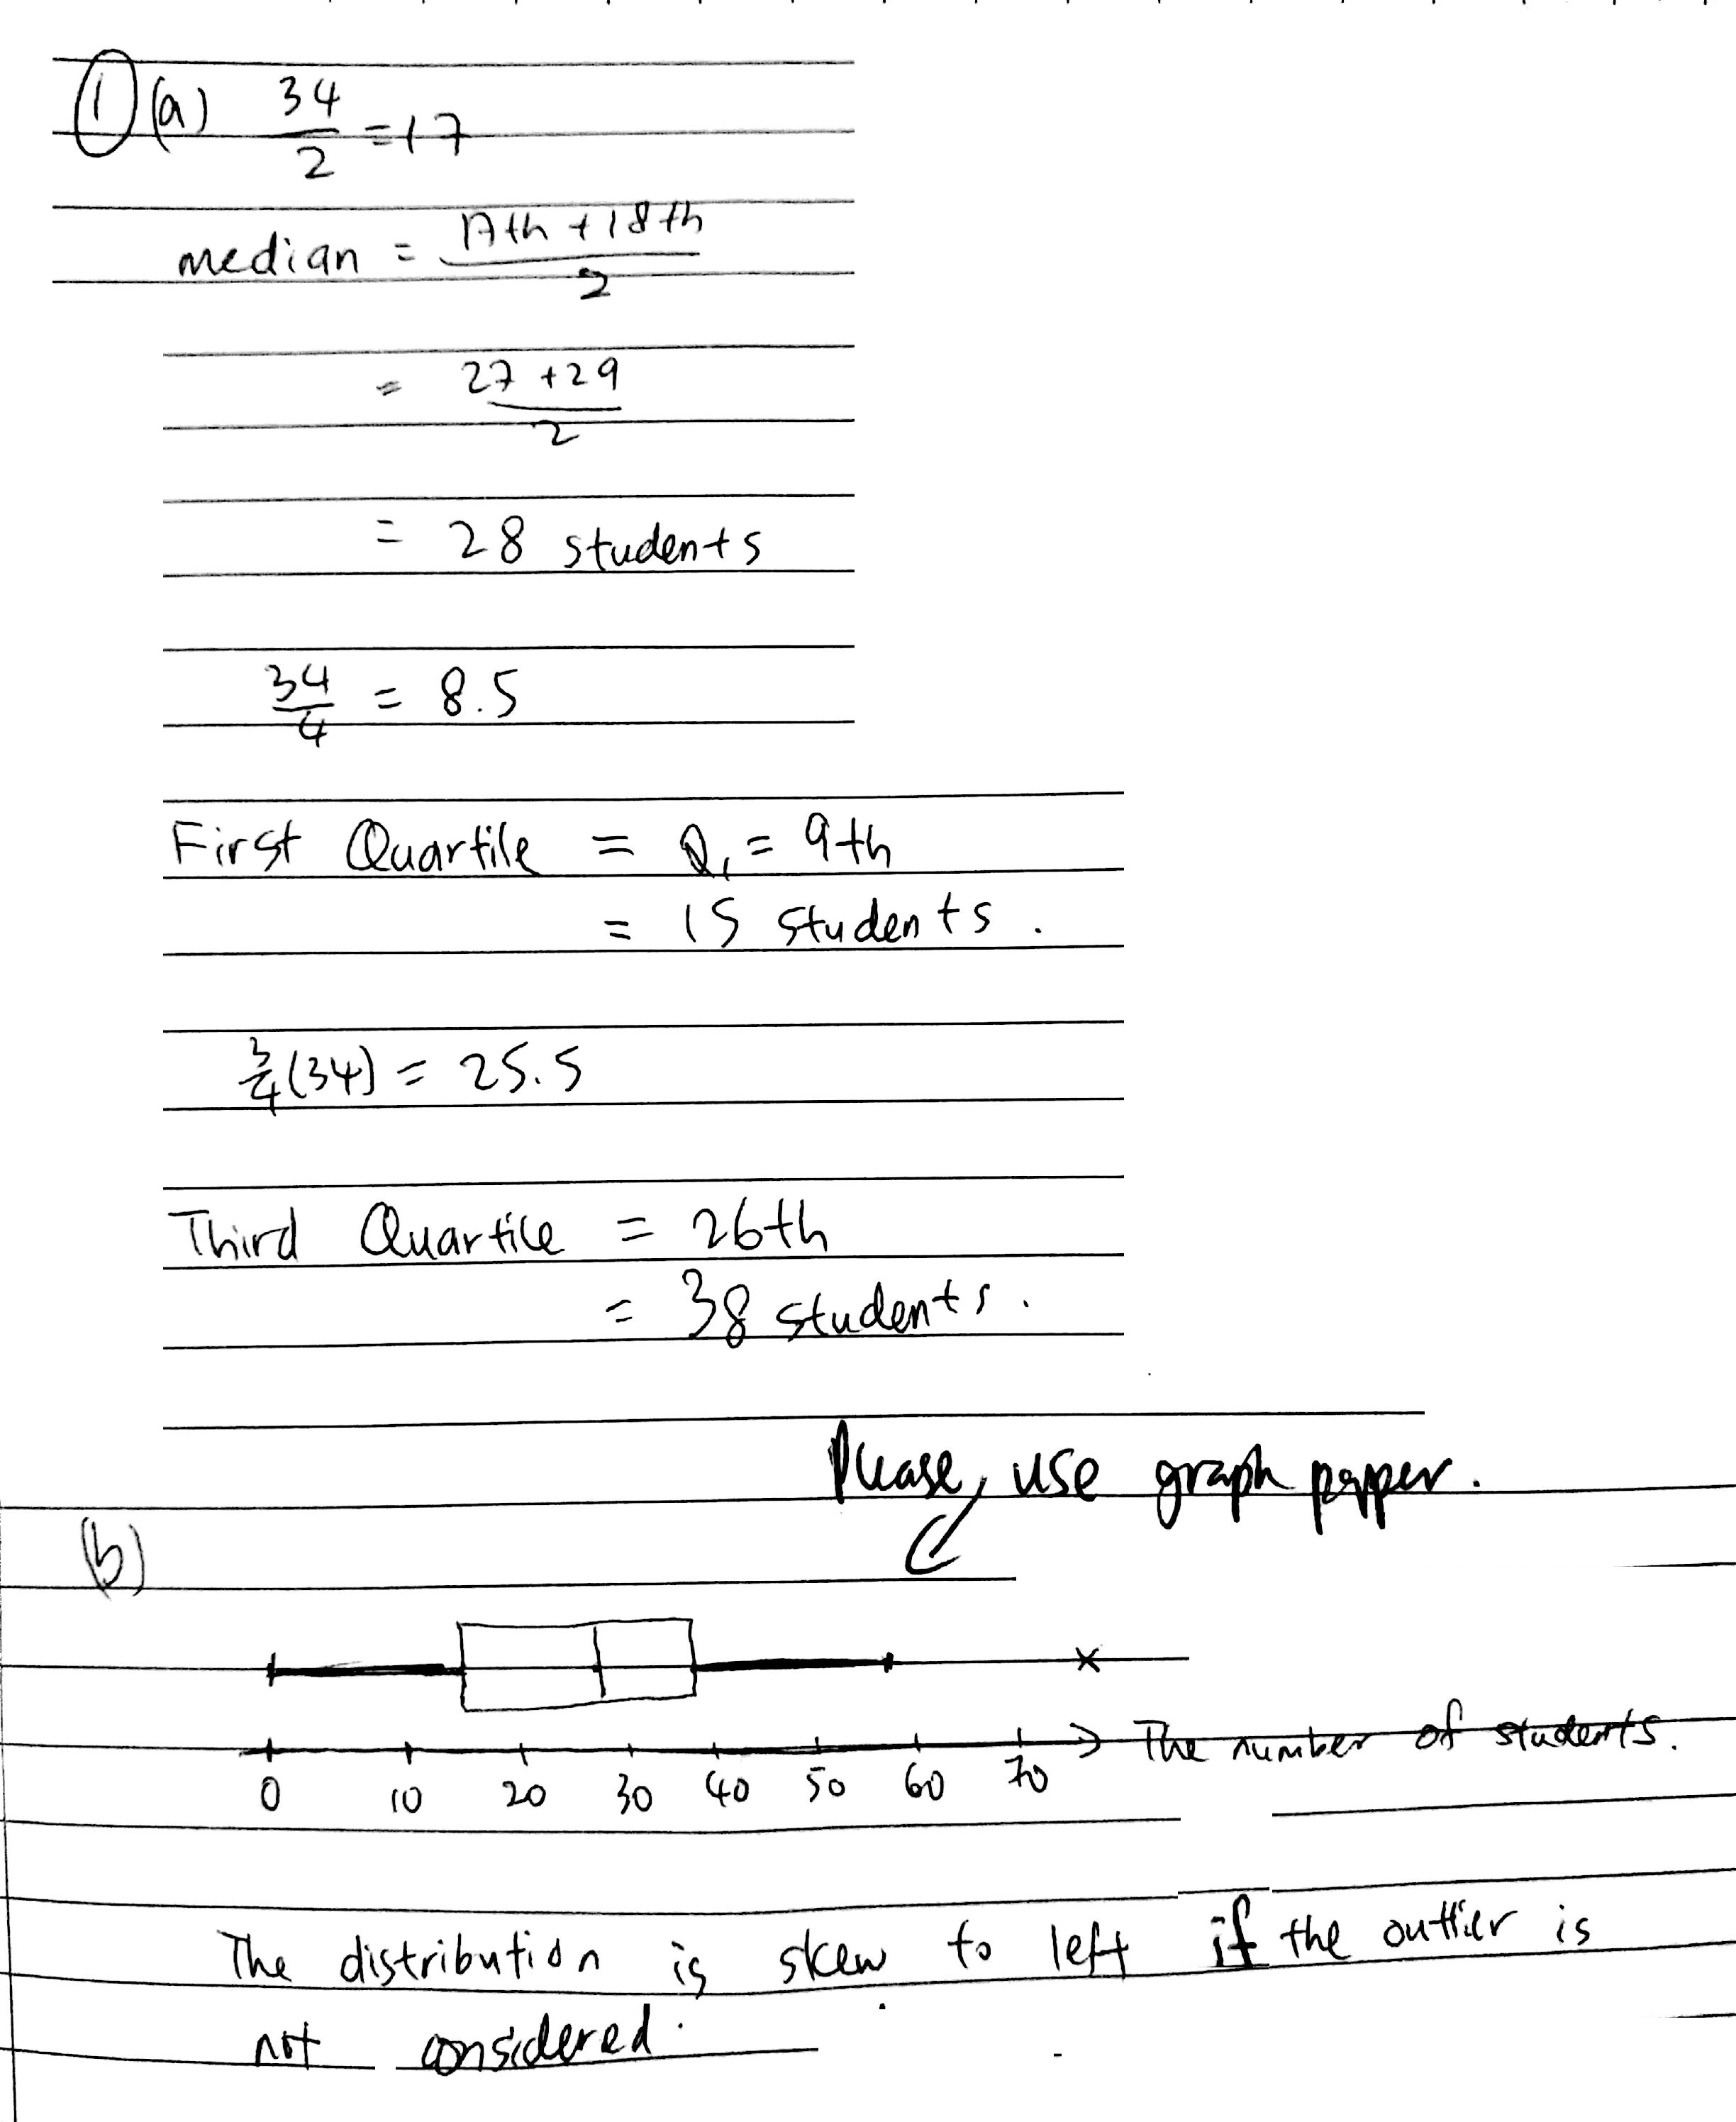 ① (a) 34/2 = 17
median = 17th + 18th / 2
= 27 + 29 / 2
= 28 students
34/4 = 8.5
First Quartile = Q₁ = 9th
= 15 students.
3/4 (34) = 25.5
Third Quartile = 26th
= 38 students.
Please, use graph papper.
(b)
0 10 20 30 40 50 60 70 The number of students.
The distribution is skew to left if the outlier is
not considered.